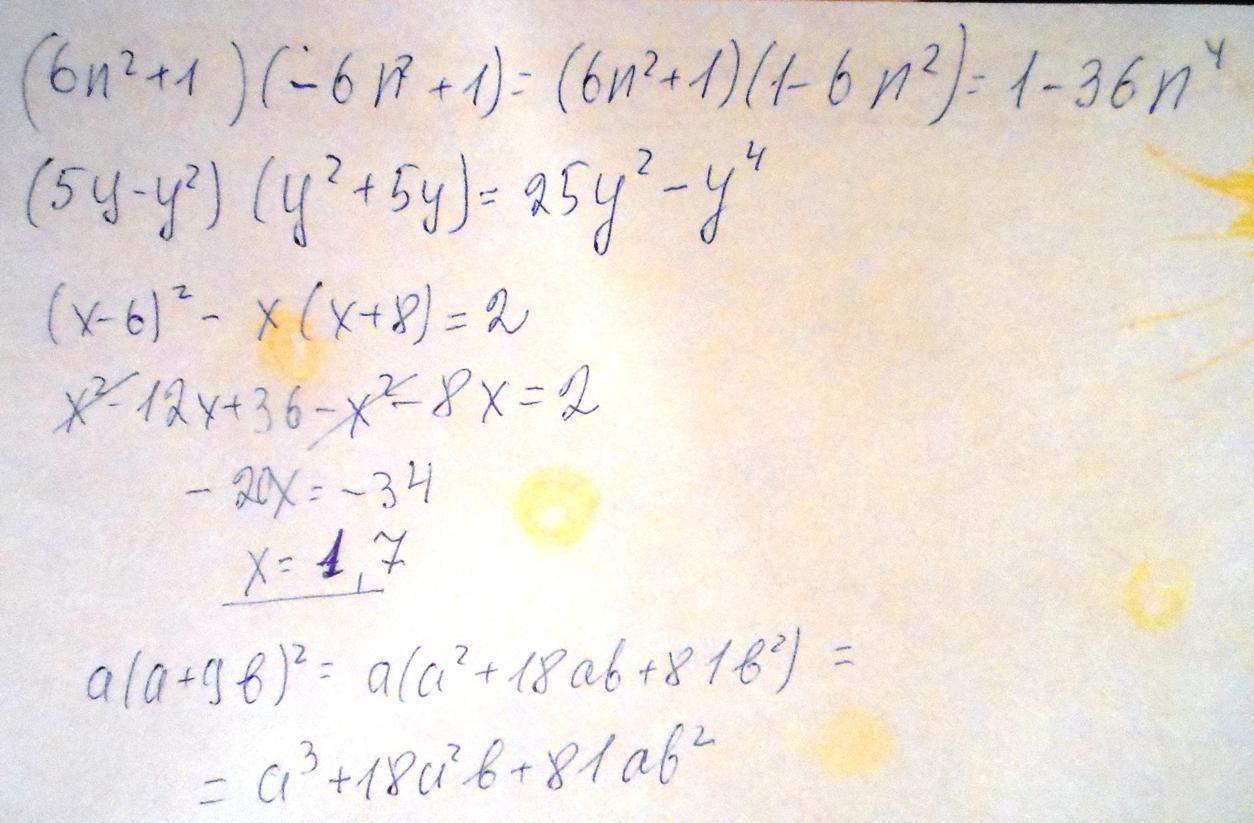 (6n²+1)(-6n²+1)=(6n²+1)(1-6n²)=1-36n⁴
(5y-y²)(y²+5y)=25y²-y⁴
(x-6)²-x(x+8)=2
x²-12x+36-x²-8x=2
-20x=-34
x=1,7
a(a+9b)²=a(a²+18ab+81b²)=
=a³+18a²b+81ab²